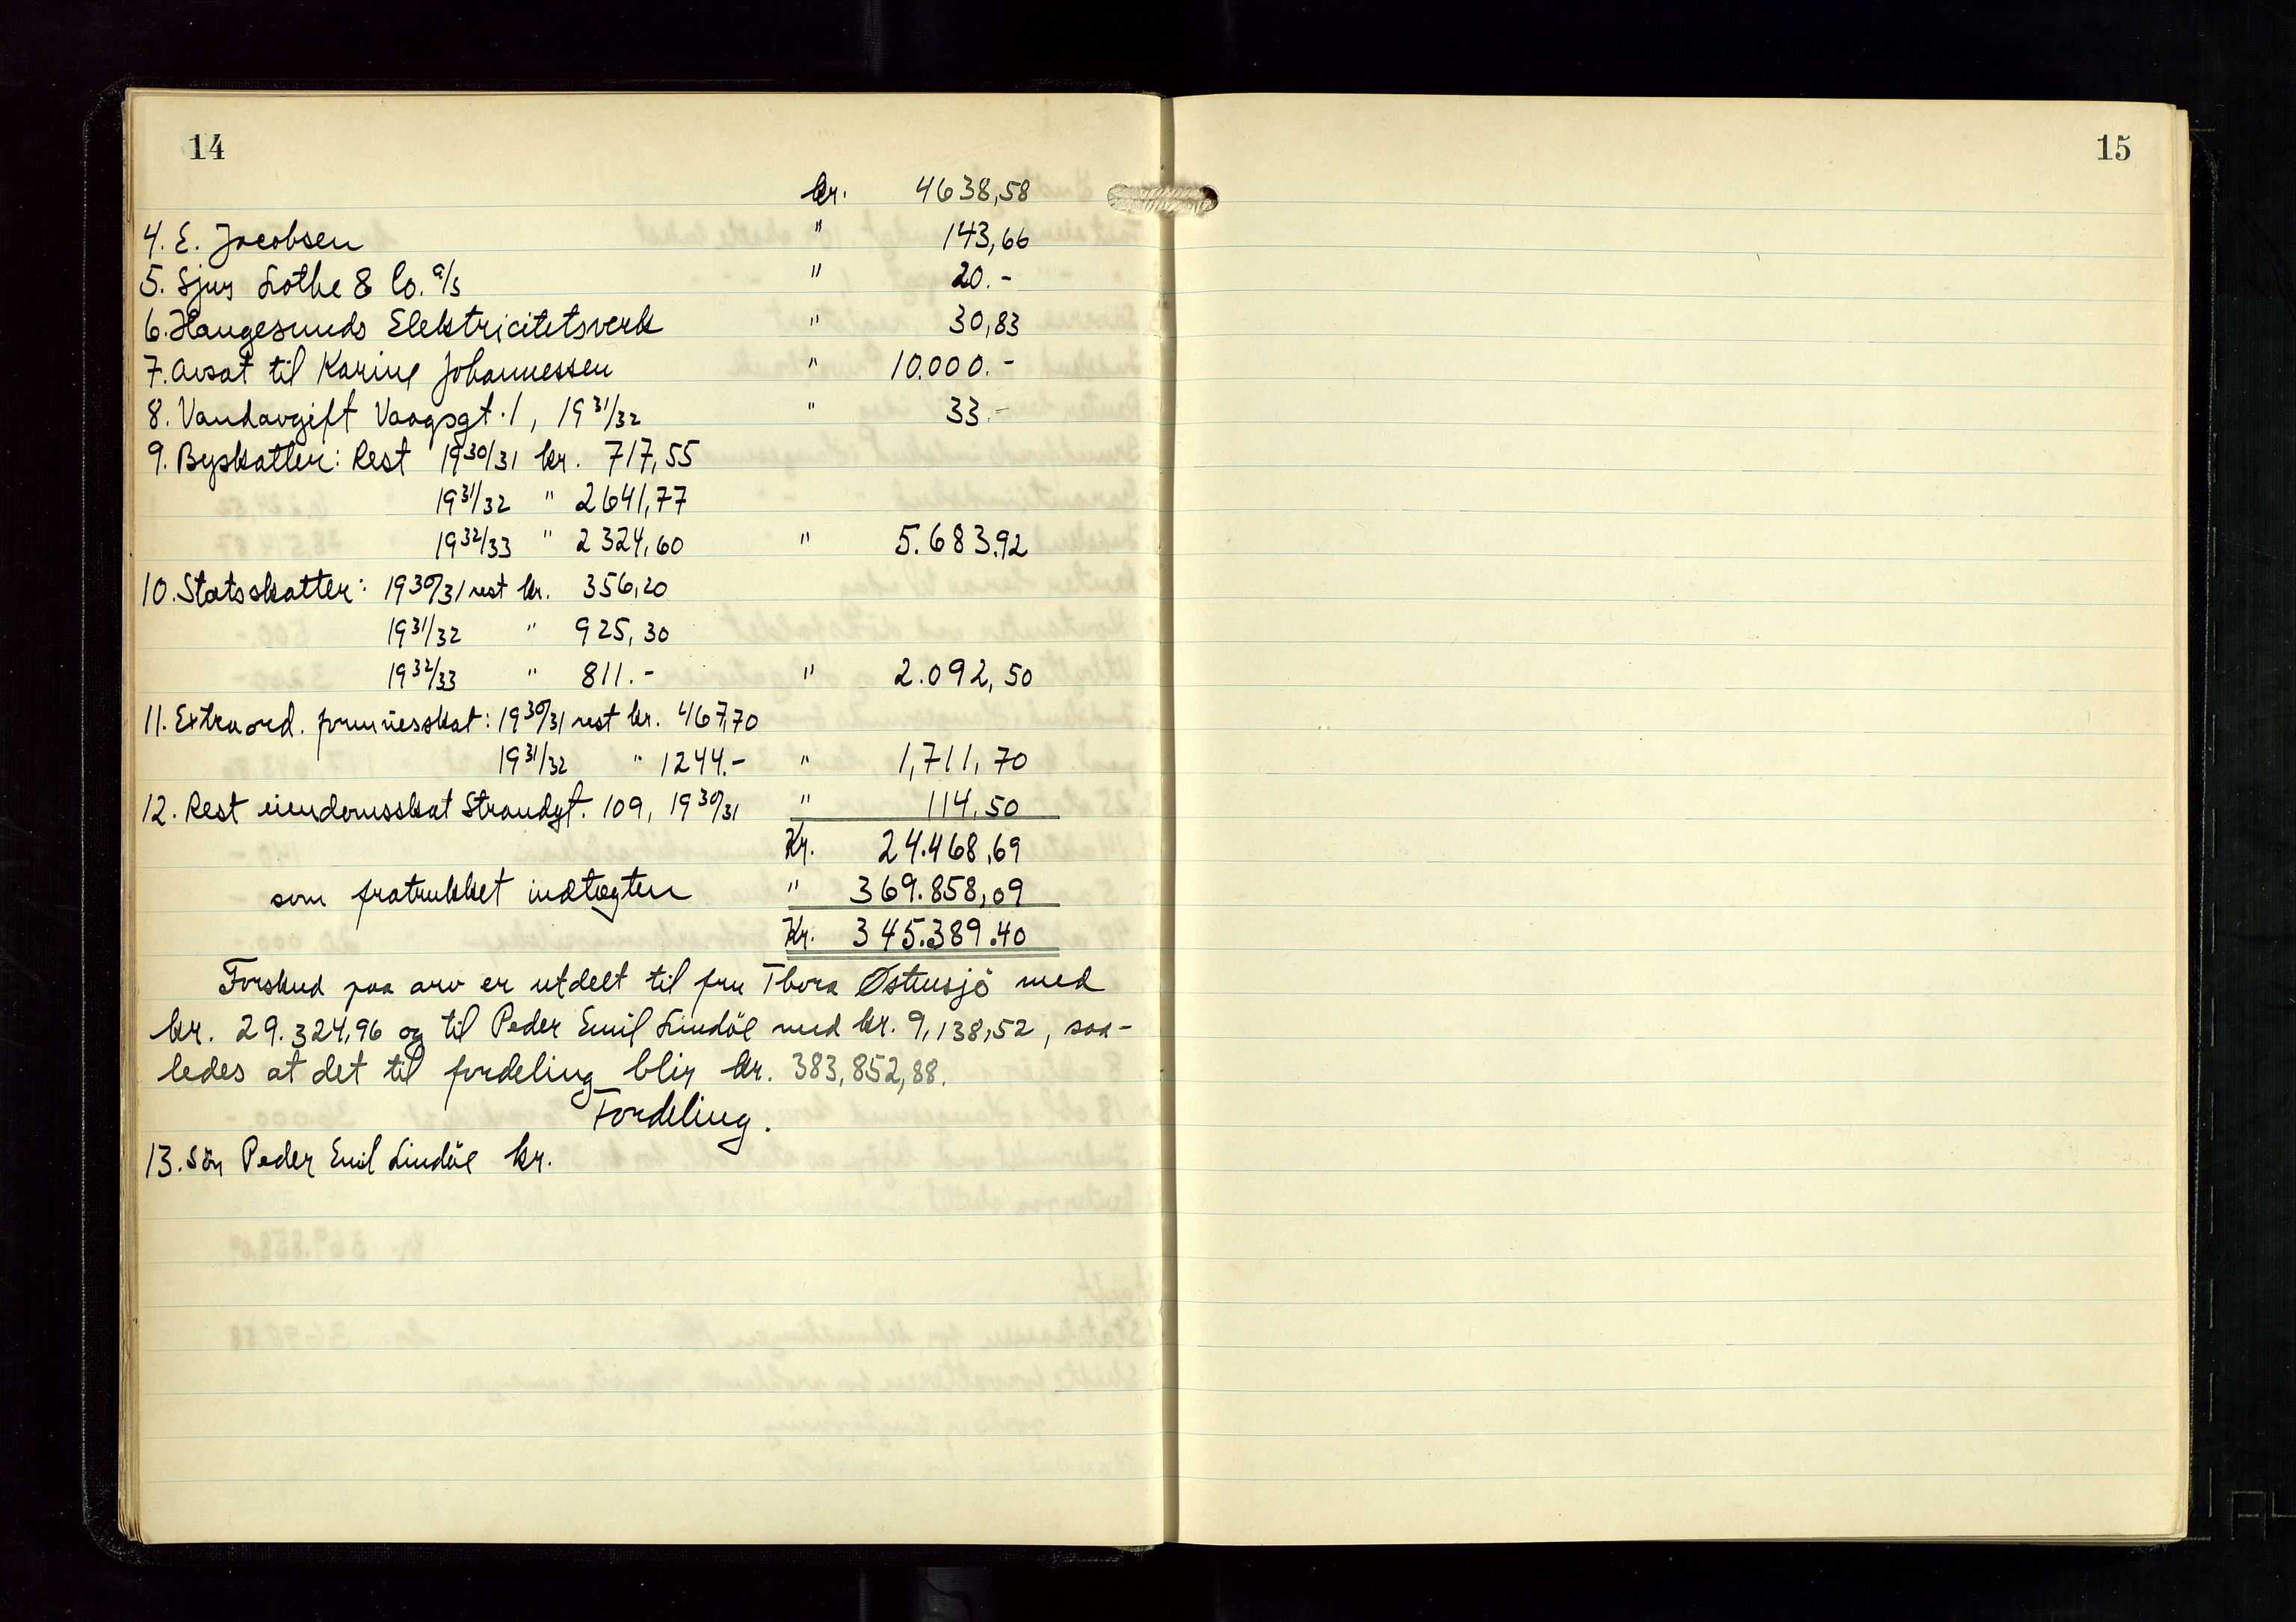 14
kr. 4638,58
4. E. Jacobsen " 143,66
5. Sjur Lothe & Co. a/s " 20.-
6. Haugesunds Elektricitetsverk " 30,83
7. Avsat til Karine Johannessen " 10.000.-
8. Vandavgift Vaagsgt. 1, 1931/32 " 33.-
9. Byskatter: Rest 1930/31 kr. 717,55
1931/32 " 2641,77
1932/33 " 2324,60 " 5.683.92
10. Statsskatter: 1930/31 rest kr. 356,20
1931/32 " 925,30
1932/33 " 811.- " 2.092,50
11. Extraord. formuesskat: 1930/31 rest kr. 467,70
1931/32 " 1244.- " 1,711,70
12. Rest eiendomsskat Strandgt. 109, 1930/31 " 114.50
Kr. 24.468,69
som fratrukket indtægten " 369.858,09
Kr. 345.389.40
Forskud paa arv er utdelt til fru Thora Østensjö med
kr. 29.324,96 og til Peder Emil Lindöe med kr. 9,138,52, saa-
ledes at det til fordeling blir kr. 383,852,88.
Fordeling.
13. Sön Peder Emil Lindöe kr.
15